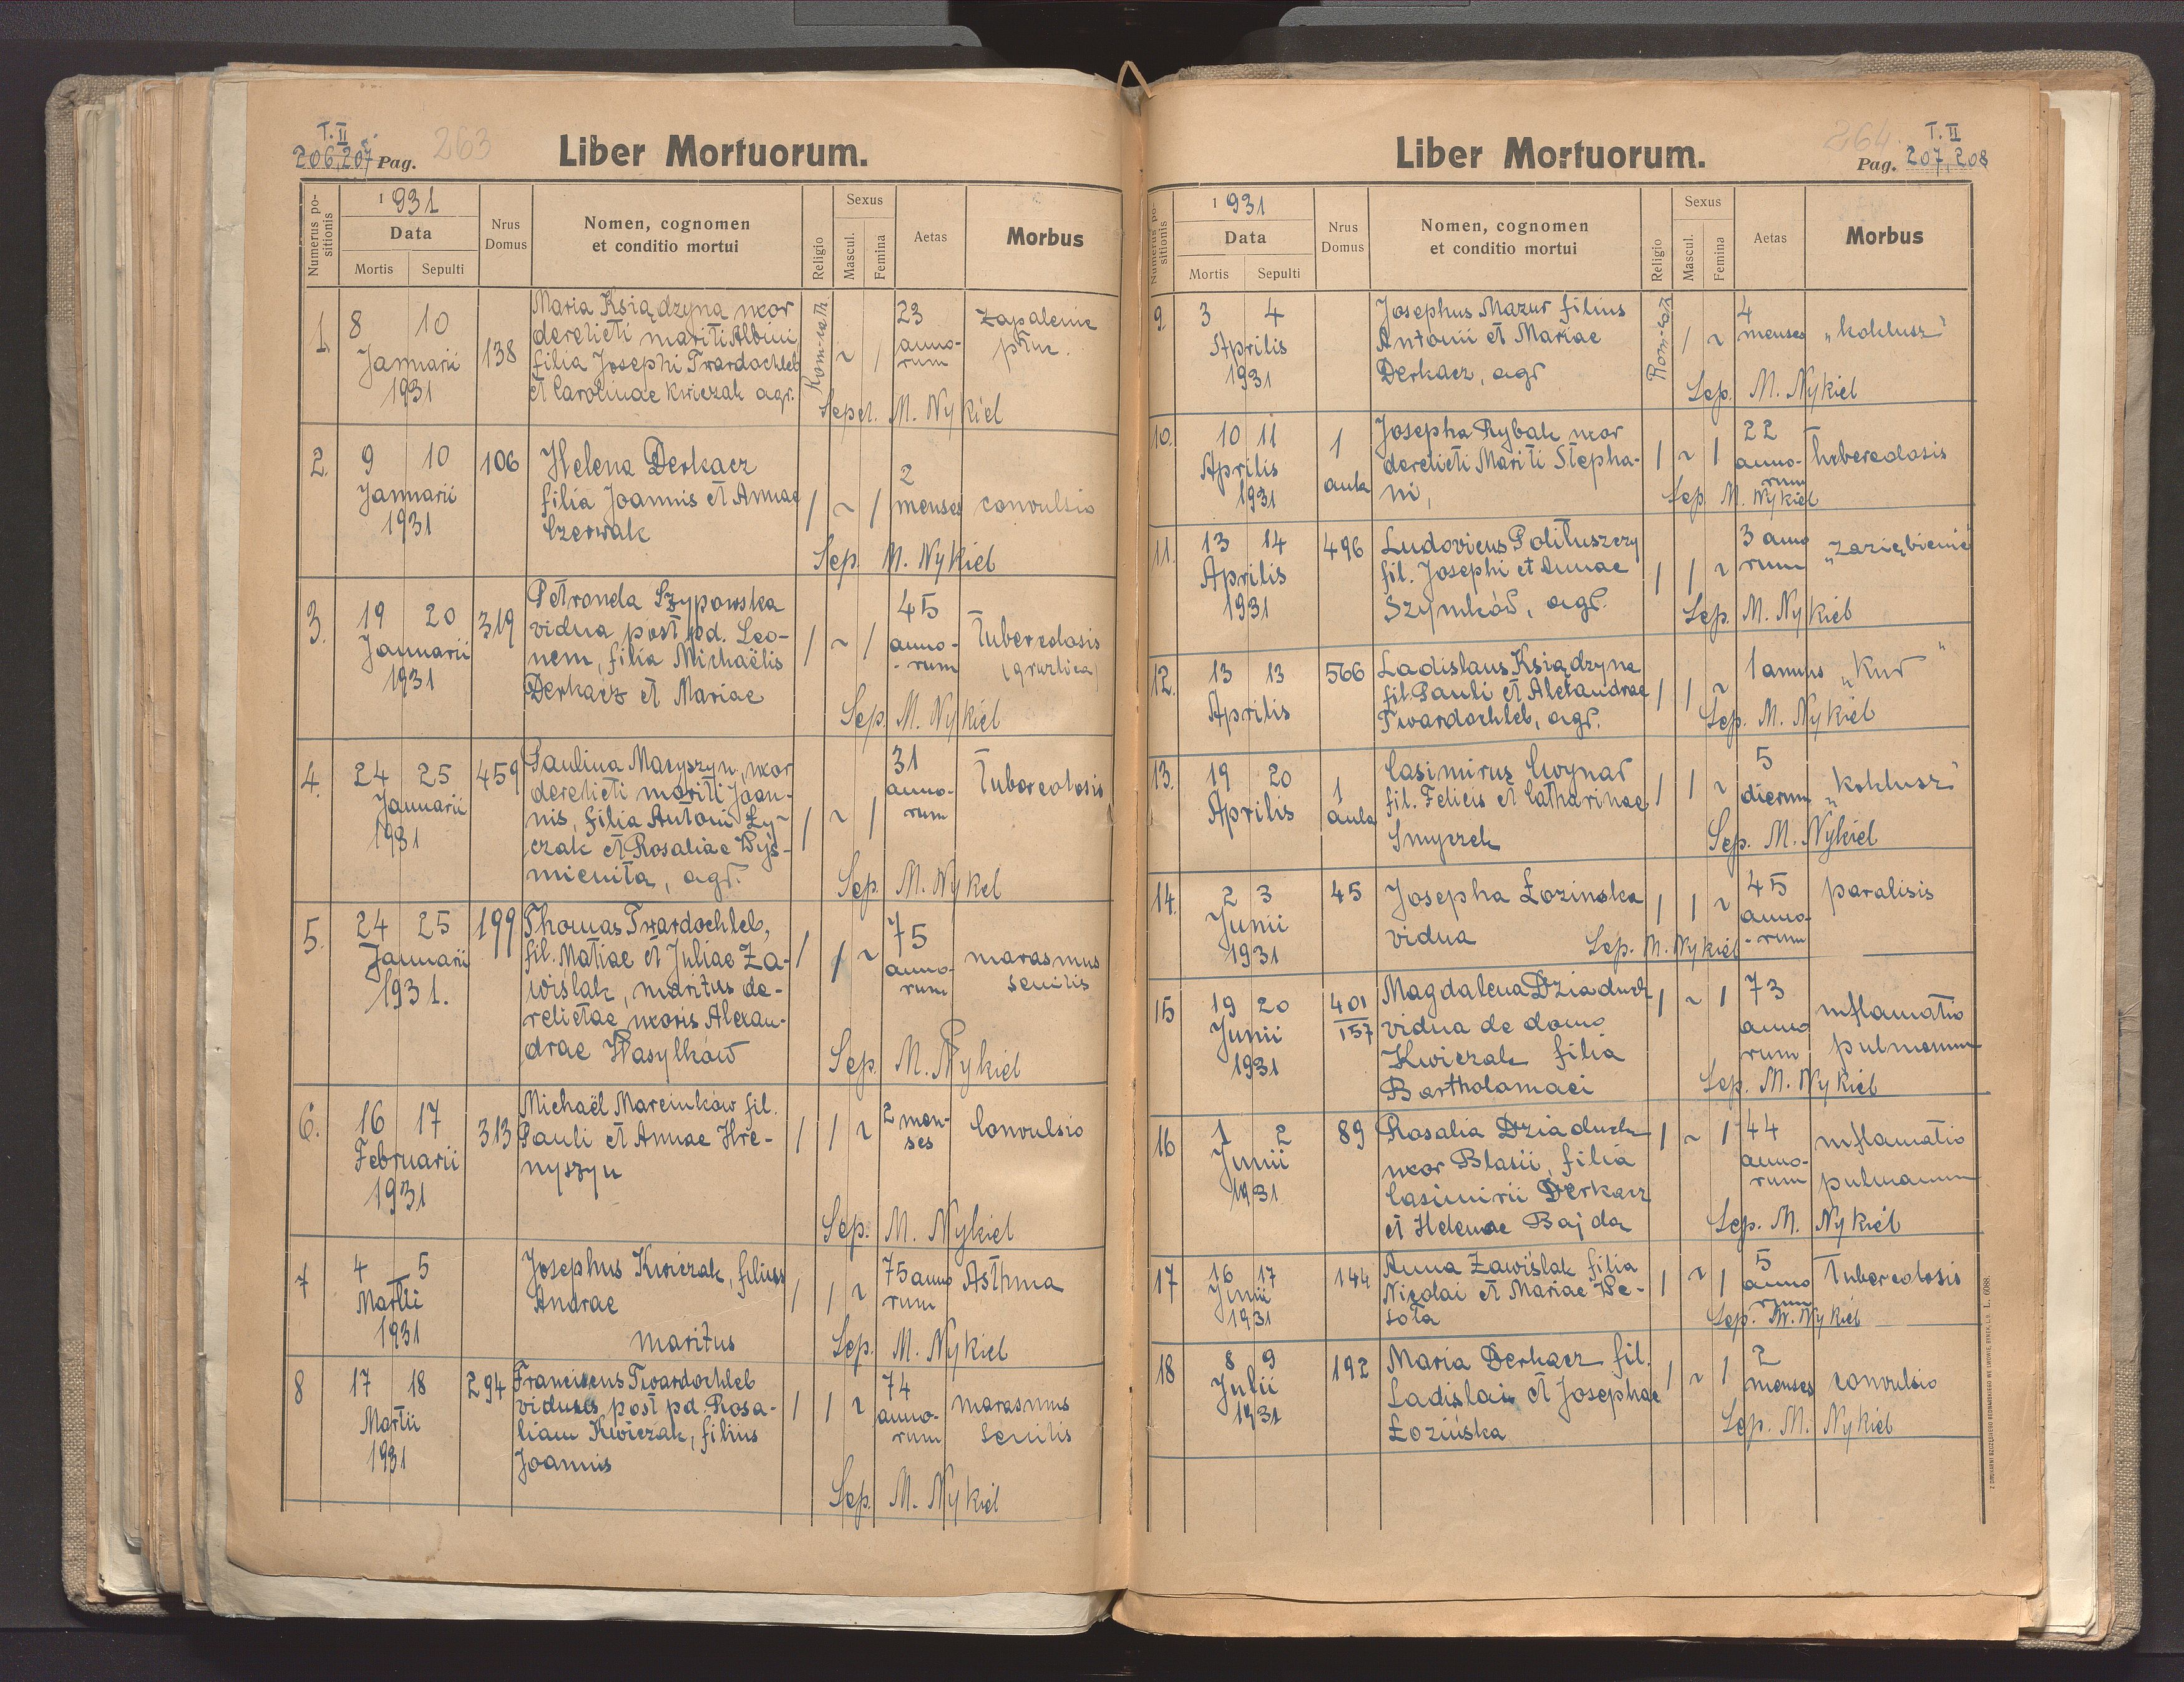 T. II
206, 207 Pag. 263
Liber Mortuorum.
Numerus positionis
1931
Data
Mortis Sepulti
Nrus Domus
Nomen, cognomen
et conditio mortui
Religio
Sexus
Mascul.
Femina
Aetas
Morbus
1. 8 10 Maria Książyna uxor 23 zapalenie
Januarii 138 derelicti mariti Albini Rom-cath. ~ / anno- płuc.
1931 filia Josephi Twardochleb rum
et Carolinae Kwiczak agr. Sepel. M. Nykiel
2. 9 10 106 Helena Derkacz 2
Januarii filia Joannis et Annae / ~ / menses convulsio
1931 Czerwak
Sep. M. Nykiel
3. 19 20 319 Petronela Szypowska 45
Januarii vidua post pd. Leo- / ~ / anno- Tuberculosis
1931 nem, filia Michaëlis - rum (gruźlica)
Derkacz et Mariae Sep. M. Nykiel
4. 24 25 459 Paulina Maryszyn, uxor 31
Januarii derelicti mariti Joan- anno- Tuberculosis
1931 nis, filia Antoni Ły- / ~ / rum
czak et Rosaliae Wyś-
mienita, agr. Sep. M. Nykiel
5. 24 25 199 Thomas Twardochleb, 75
Januarii fil. Matiae et Juliae Za- / / ~ anno- marasmus
1931. wiślak, maritus de- rum senilis
relictae uxoris Alexan-
drae Wasylków Sep. M. Nykiel
6. 16 17 313 Michaël Marcinków fil. 2 men-
Februarii Pauli et Annae Hre- / / ~ ses Convulsio
1931 nyszyn
Sep. M. Nykiel
7 4 5 Josephus Kwiczak, filius 75 anno Asthma
Martii Andrae / / ~ rum
1931 maritus Sep. M. Nykiel
8 17 18 294 Franciscus Twardochleb 74
Martii viduus post pd. Rosa- / / ~ anno- marasmus
1931 liam Kwiczak, filius rum senilis
Joannis
Sep. M. Nykiel
T. II
264 Pag. 207, 208
Liber Mortuorum.
Numerus positionis
1931
Data
Mortis Sepulti
Nrus Domus
Nomen, cognomen
et conditio mortui
Religio
Sexus
Mascul.
Femina
Aetas
Morbus
9. 3 4 Josephus Mazur filius 4
Aprilis Antonii et Mariae Rom-cath / ~ menses „koklusz"
1931 Derkacz, agr Sep. M. Nykiel
10. 10 11 1 Josepha Rybak uxor 22
Aprilis aula derelicti Mariti Stepha- / ~ / anno- tuberculosis
1931 ni, rum
Sep. M. Nykiel
11. 13 14 496 Ludovicus Polituszczy 3 anno „zaziębienie"
Aprilis fil. Josephi et Annae / / ~ rum
1931 Szymków, agr. Sep. M. Nykiel
12. 13 13 566 Ladislaus Książyna 1 annus „Kur"
Aprilis fil. Pauli et Alexandrae / / ~
Twardochleb, agr. Sep. M. Nykiel
13. 19 20 1 Casimirus Cwynar 5
Aprilis aula fil. Felicis et Catharinae / / ~ dierum „koklusz"
Smyczek Sep. M. Nykiel
14. 2 3 45 Josepha Łozinska / / ~ 45 paralisis
Junii vidua anno-
1931 Sep. M. Nykiel - rum
15 19 20 401/157 Magdalena Dziaduch / ~ / 73 inflamatio
Junii vidua de domo anno pulmonum
1931 Kwiczak filia rum
Bartholomaei Sep. M. Nykiel
16 1 2 89 Rosalia Dziaduch / ~ / 44 inflamatio
Junii uxor Blasii, filia anno- pulmonum
1931 Casimirii Derkacz rum
et Helenae Bajda Sep. M. Nykiel
17 16 17 144 Anna Zawiślak filia / ~ / 5 Tuberculosis
Junii Nicolai et Mariae We- anno
1931 soła rum
Sep. M. Nykiel
18 8 9 192 Maria Derkacz fil. / ~ / 2
Julii Ladislai et Josephae menses convulsio
1931 Łozińska Sep. M. Nykiel
Z DRUKARNI SZCZĘSNEGO BEDNARSKIEGO WE LWOWIE, RYNEK L. 9. L. 6088.